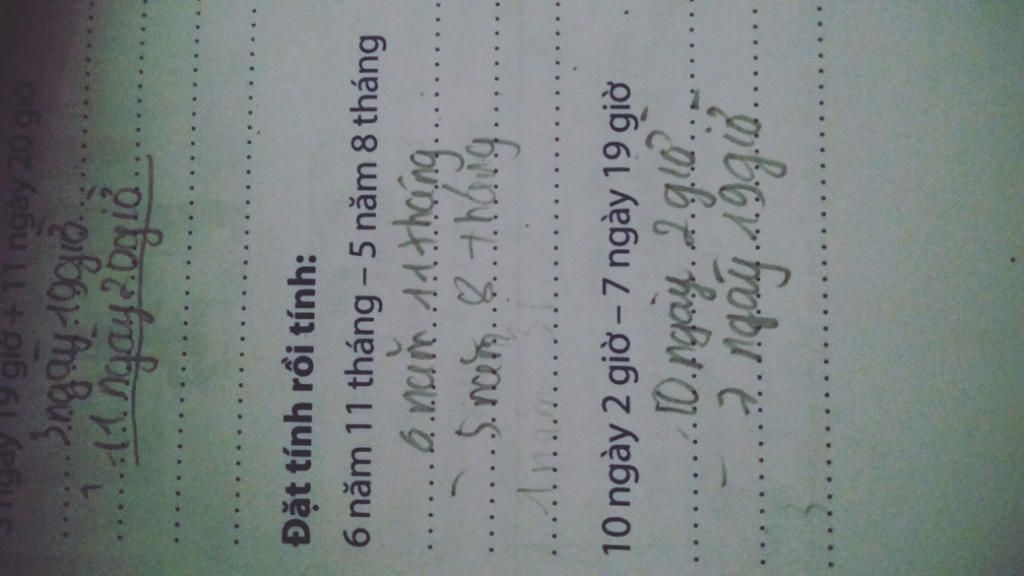 ngày 19 giờ + 11 ngày 20 giờ
3 ngày 19 giờ
11 ngày 20 giờ
Đặt tính rồi tính:
6 năm 11 tháng – 5 năm 8 tháng
6 năm 11 tháng
–
5 năm 8 tháng
1 năm 3
10 ngày 2 giờ – 7 ngày 19 giờ
10 ngày 2 giờ
–
7 ngày 19 giờ